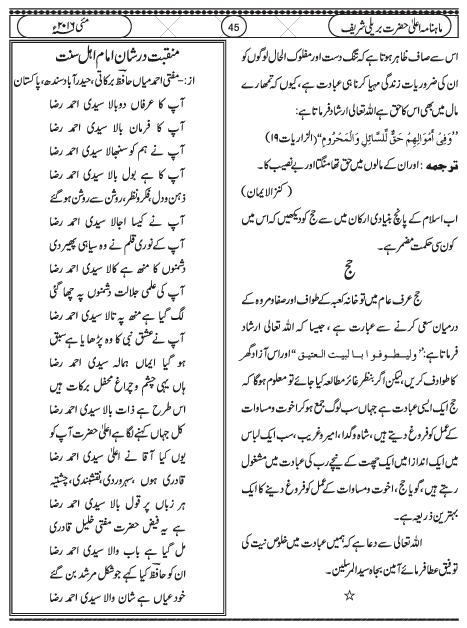 ماہنامہ اعلیٰ حضرت بریلی شریف
45
مئی ۲۰۱۶ء
اس سے صاف ظاہر ہوتا ہے کہ تنگ دست اور مفلوک الحال لوگوں کو
ان کی ضروریات زندگی مہیا کرنا ہی عبادت ہے، کیوں کہ تمھارے
مال میں بھی اس کا حق ہے اللہ تعالی ارشاد فرماتا ہے:
"وَفِیْ أَمْوَالِهِمْ حَقٌّ لِّلسَّائِلِ وَالْمَحْرُومِ" (الزاریات ۱۹)
ترجمہ: اور ان کے مالوں میں حق تھا منگتا اور بے نصیب کا۔
(کنز الایمان)
اب اسلام کے پانچ بنیادی ارکان میں سے حج کو دیکھیں کہ اس میں
کون سی حکمت مضمر ہے۔
حج
حج عرف عام میں تو خانہ کعبہ کے طواف اور صفا و مروہ کے
درمیان سعی کرنے سے عبارت ہے، جیسا کہ اللہ تعالی ارشاد
فرماتا ہے: "ولیطوفوا بالبیت العتیق" اور اس آزاد گھر
کا طواف کریں، لیکن اگر بنظر غائر مطالعہ کیا جائے تو معلوم ہوگا کہ
حج ایک ایسی عبادت ہے جہاں سب لوگ جمع ہو کر اخوت و مساوات
کے عمل کو فروغ دیتے ہیں، شاہ و گدا، امیر و غریب، سب ایک لباس
میں ایک انداز میں ایک چھت کے نیچے رب کی عبادت میں مشغول
رہتے ہیں، گویا حج، اخوت و مساوات کے عمل کو فروغ دینے کا ایک
بہترین ذریعہ ہے۔
اللہ تعالی سے دعا ہے کہ ہمیں عبادت میں خلوص نیت کی
توفیق عطا فرمائے آمین بجاہ سید المرسلین۔
☆
منقبت در شان امام اہل سنت
از:- مفتی احمد میاں حافظ برکاتی، حیدرآباد سندھ، پاکستان
آپ کا عرفاں دوبالا سیدی احمد رضا
آپ کا فرمان بالا سیدی احمد رضا
آپ نے ہم کو سنبھالا سیدی احمد رضا
آپ کا ہے بول بالا سیدی احمد رضا
ذہن و دل، فکر و نظر، روشن سے روشن ہو گئے
آپ نے کیسا اجالا سیدی احمد رضا
آپ کے نوری قلم نے وہ سیاہی پھیر دی
دشمنوں کا منھ ہے کالا سیدی احمد رضا
آپ کی علمی جلالت دشمنوں پہ چھا گئی
لگ گیا ہے منھ پہ تالا سیدی احمد رضا
آپ نے عشق نبی کا وہ پڑھایا ہے سبق
ہو گیا ایماں ہمالہ سیدی احمد رضا
ہاں یہی چشم و چراغ محفل برکات ہیں
اس طرح ہے ذات بالا سیدی احمد رضا
کل جہاں کہنے لگا ہے اعلیٰ حضرت آپ کو
یوں کیا آقا نے اعلیٰ سیدی احمد رضا
قادری ہوں، سہروردی، نقشبندی، چشتیہ
ہر زباں پر قول بالا سیدی احمد رضا
ہے یہ فیض حضرت مفتی خلیل قادری
مل گیا ہے باب والا سیدی احمد رضا
ان کو حافظ کیا کہے جو شکل مرشد بن گئے
خود عیاں ہے شان والا سیدی احمد رضا